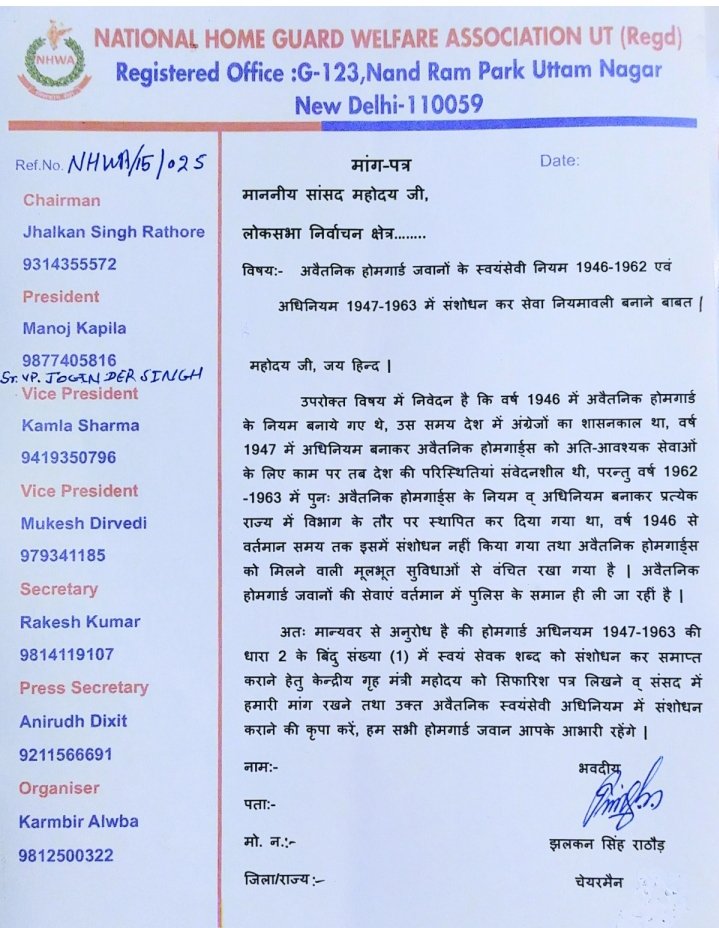 NHWA
NATIONAL HOME GUARD WELFARE ASSOCIATION UT (Regd)
Registered Office :G-123,Nand Ram Park Uttam Nagar
New Delhi-110059
Ref.No. NHWA/15/025
Date:
Chairman
Jhalkan Singh Rathore
9314355572
President
Manoj Kapila
9877405816
Sr. VP. JOGINDER SINGH
Vice President
Kamla Sharma
9419350796
Vice President
Mukesh Dirvedi
979341185
Secretary
Rakesh Kumar
9814119107
Press Secretary
Anirudh Dixit
9211566691
Organiser
Karmbir Alwba
9812500322
मांग-पत्र
माननीय सांसद महोदय जी,
लोकसभा निर्वाचन क्षेत्र........
विषय:- अवैतनिक होमगार्ड जवानों के स्वयंसेवी नियम 1946-1962 एवं
अधिनियम 1947-1963 में संशोधन कर सेवा नियमावली बनाने बाबत |
महोदय जी, जय हिन्द |
उपरोक्त विषय में निवेदन है कि वर्ष 1946 में अवैतनिक होमगार्ड
के नियम बनाये गए थे, उस समय देश में अंग्रेजों का शासनकाल था, वर्ष
1947 में अधिनियम बनाकर अवैतनिक होमगार्ड्स को अति-आवश्यक सेवाओं
के लिए काम पर तब देश की परिस्थितियां संवेदनशील थी, परन्तु वर्ष 1962
-1963 में पुनः अवैतनिक होमगार्ड्स के नियम व् अधिनियम बनाकर प्रत्येक
राज्य में विभाग के तौर पर स्थापित कर दिया गया था, वर्ष 1946 से
वर्तमान समय तक इसमें संशोधन नहीं किया गया तथा अवैतनिक होमगार्ड्स
को मिलने वाली मूलभूत सुविधाओं से वंचित रखा गया है | अवैतनिक
होमगार्ड जवानों की सेवाएं वर्तमान में पुलिस के समान ही ली जा रहीं है |
अतः मान्यवर से अनुरोध है की होमगार्ड अधिनयम 1947-1963 की
धारा 2 के बिंदु संख्या (1) में स्वयं सेवक शब्द को संशोधन कर समाप्त
कराने हेतु केन्द्रीय गृह मंत्री महोदय को सिफारिश पत्र लिखने व् संसद में
हमारी मांग रखने तथा उक्त अवैतनिक स्वयंसेवी अधिनियम में संशोधन
कराने की कृपा करें, हम सभी होमगार्ड जवान आपके आभारी रहेंगे |
नाम:-
भवदीय
पता:-
मो. न.:-
झलकन सिंह राठौड़
जिला/राज्य:-
चेयरमैन